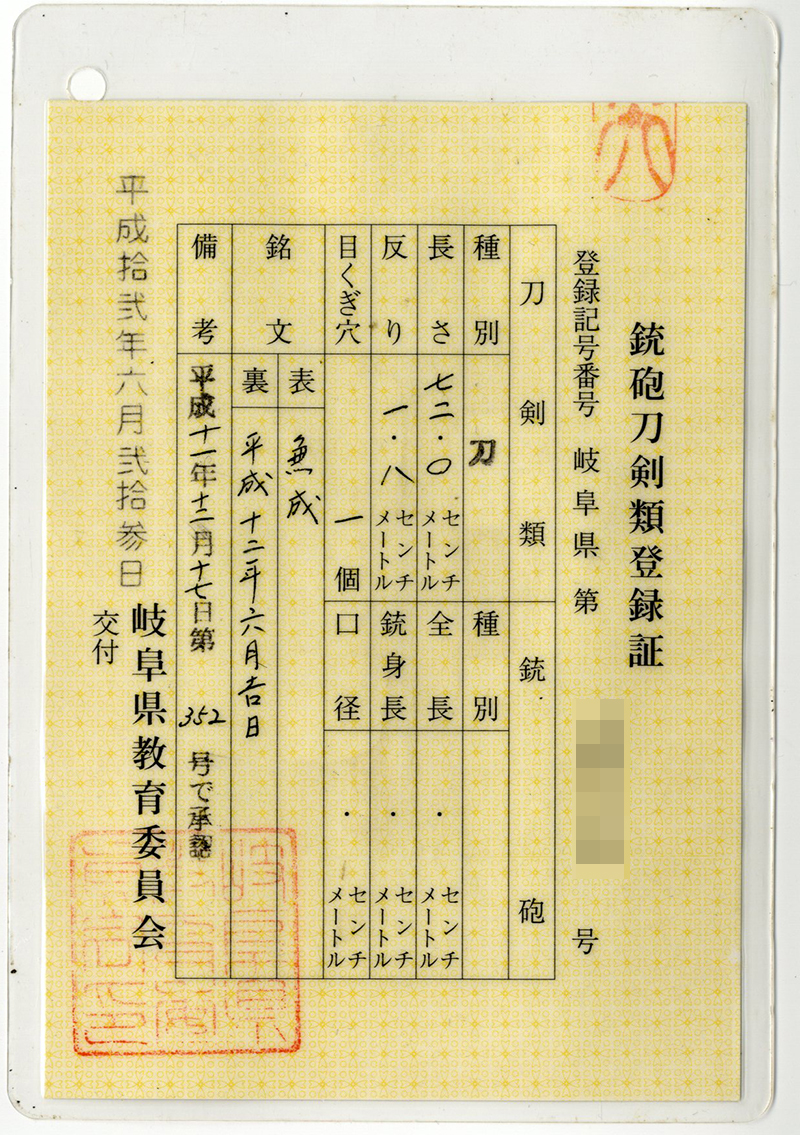 銃砲刀剣類登録証
登録記号番号 岐阜県 第 号
刀剣類 銃砲
種別 刀 種別
長さ 七二・〇 センチメートル 全長 ・ センチメートル
反り 一・八 センチメートル 銃身長 ・ センチメートル
目くぎ穴 一個 口径 ・ センチメートル
銘文 表 兼成
裏 平成十二年六月吉日
備考 平成十一年十二月十七日第 352 号で承認
岐阜県教育委員会
交付
平成拾弐年六月弐拾参日